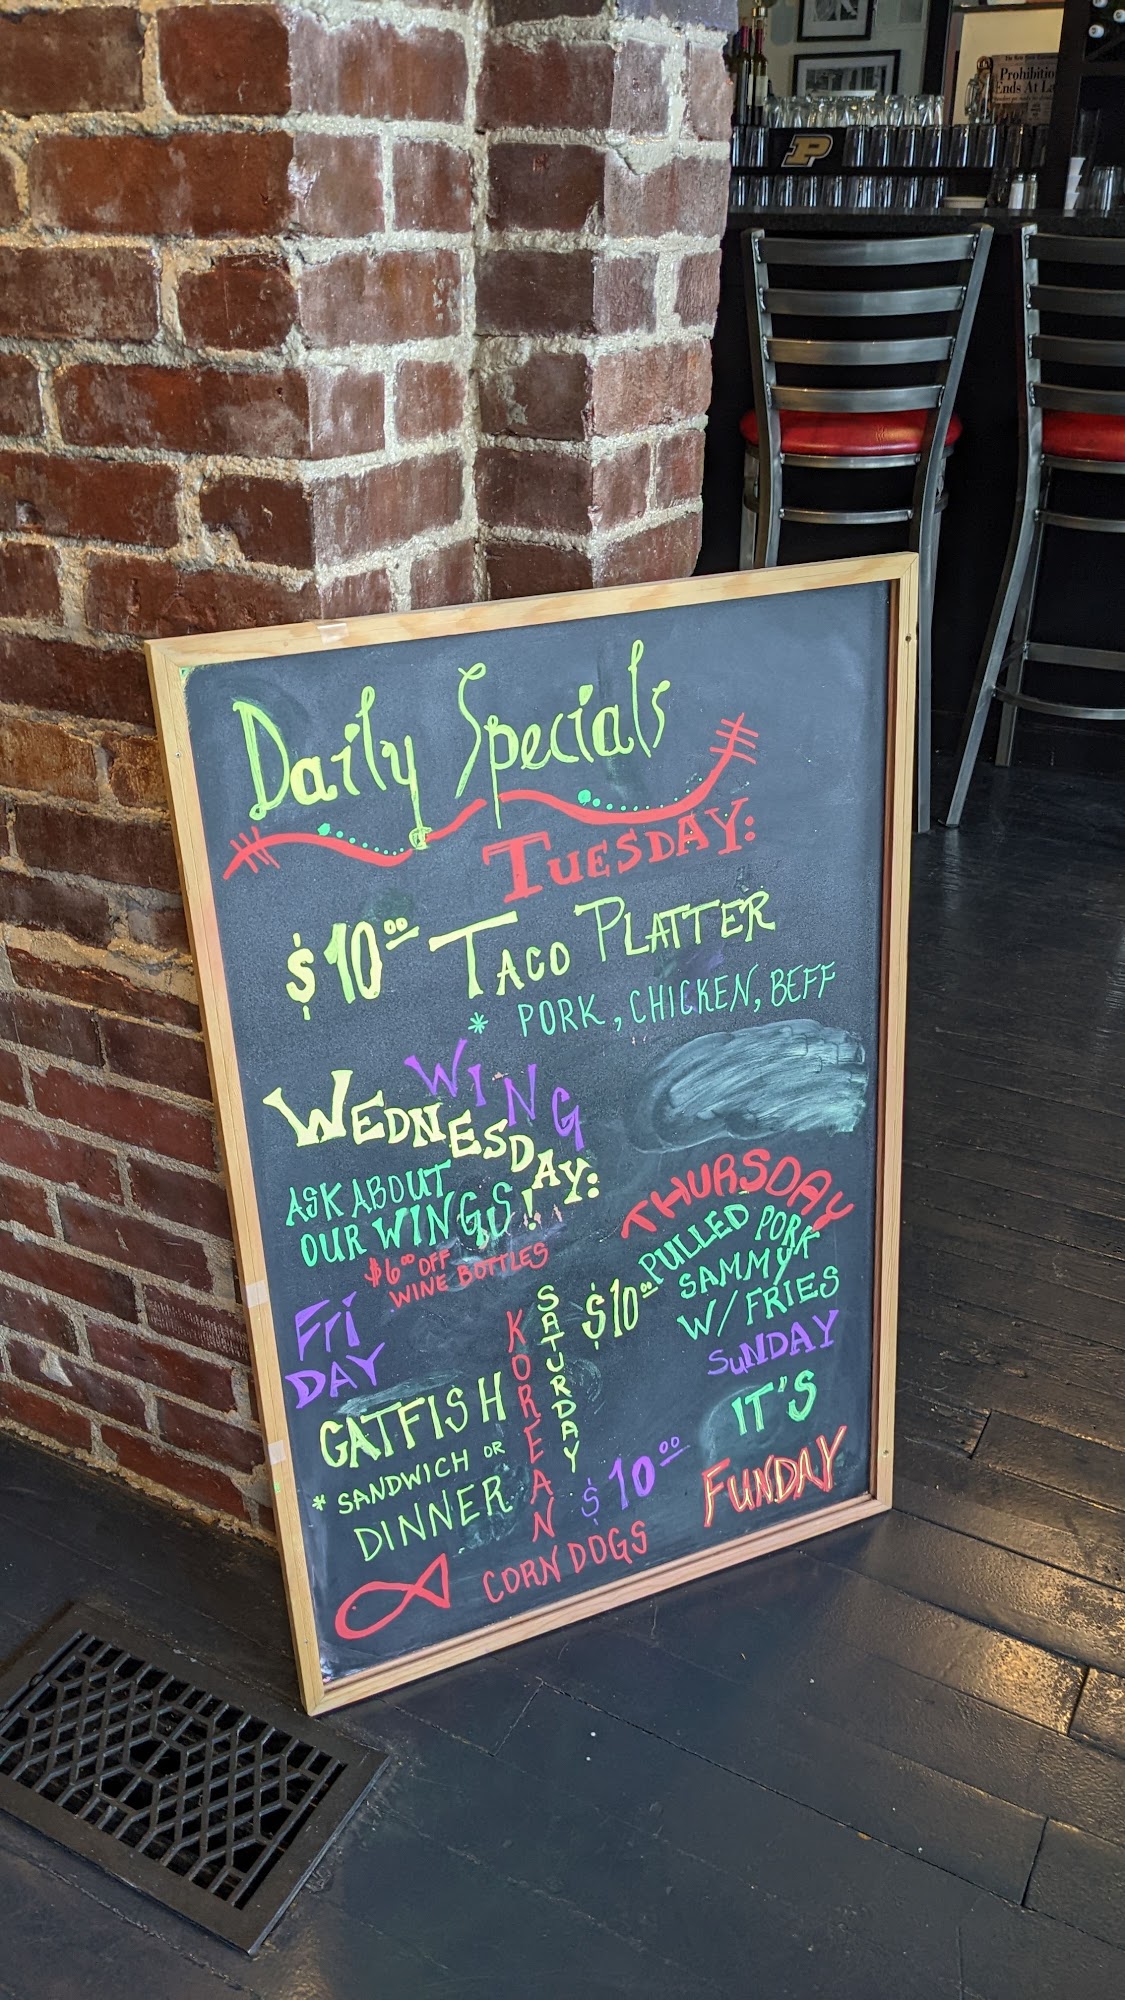 The New York
Prohibition
Ends At La
P
Daily Specials
TUESDAY:
$10.00 TACO PLATTER
* PORK, CHICKEN, BEFF
WING
WEDNESDAY:
ASK ABOUT
OUR WINGS!
$6.00 OFF
WINE BOTTLES
THURSDAY
$10.00 PULLED PORK
SAMMY
W/ FRIES
FRI
DAY
CATFISH
* SANDWICH OR
DINNER
SATURDAY
KOREAN
CORN DOGS
$10.00
SUNDAY
IT'S
FUNDAY